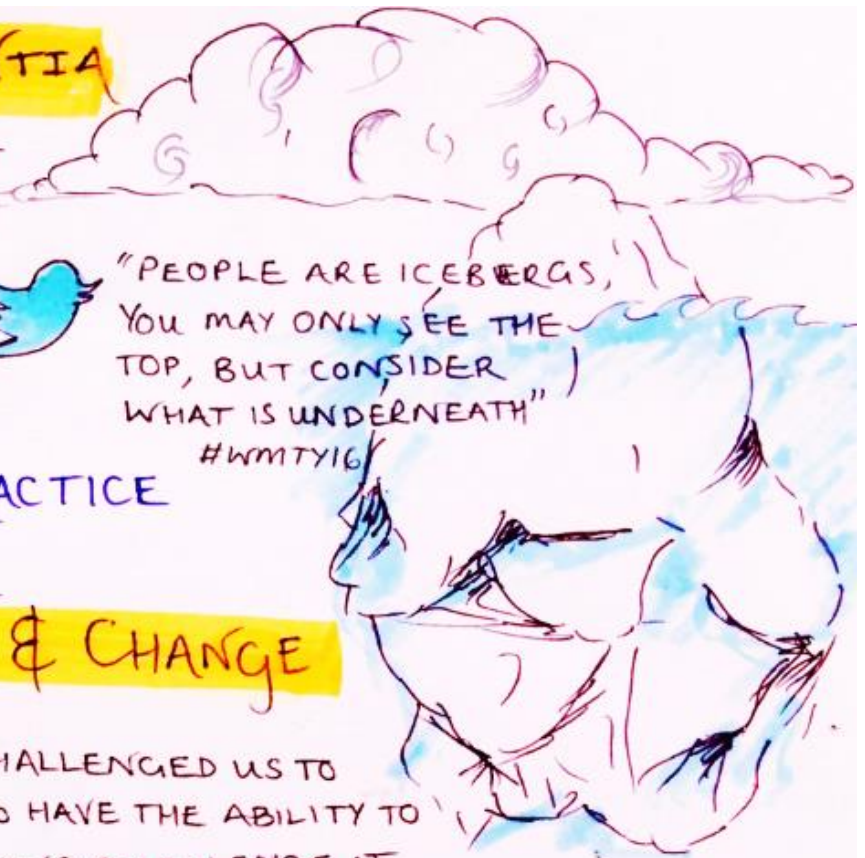 TIA
"PEOPLE ARE ICEBERGS,
YOU MAY ONLY SEE THE
TOP, BUT CONSIDER
WHAT IS UNDERNEATH"
#WMTY16
ACTICE
& CHANGE
HALLENGED US TO
HAVE THE ABILITY TO